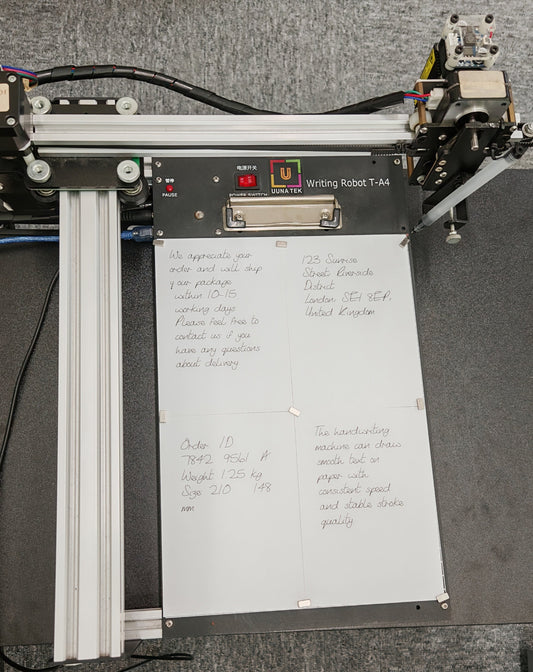 电源开关
暂停
PAUSE
POWER SWITCH
U
UUNA TEK
Writing Robot T-A4
We appreciate your
order and will ship
your package
within 10-15
working days
Please feel free to
contact us if you
have any questions
about delivery
123 Sunrise
Street Riverside
District
London SE1 8EP,
United Kingdom
Order ID
7842 9561 A
Weight 1.25 kg
Size 210 148
mm
The handwriting
machine can draw
smooth text on
paper with
consistent speed
and stable stroke
quality